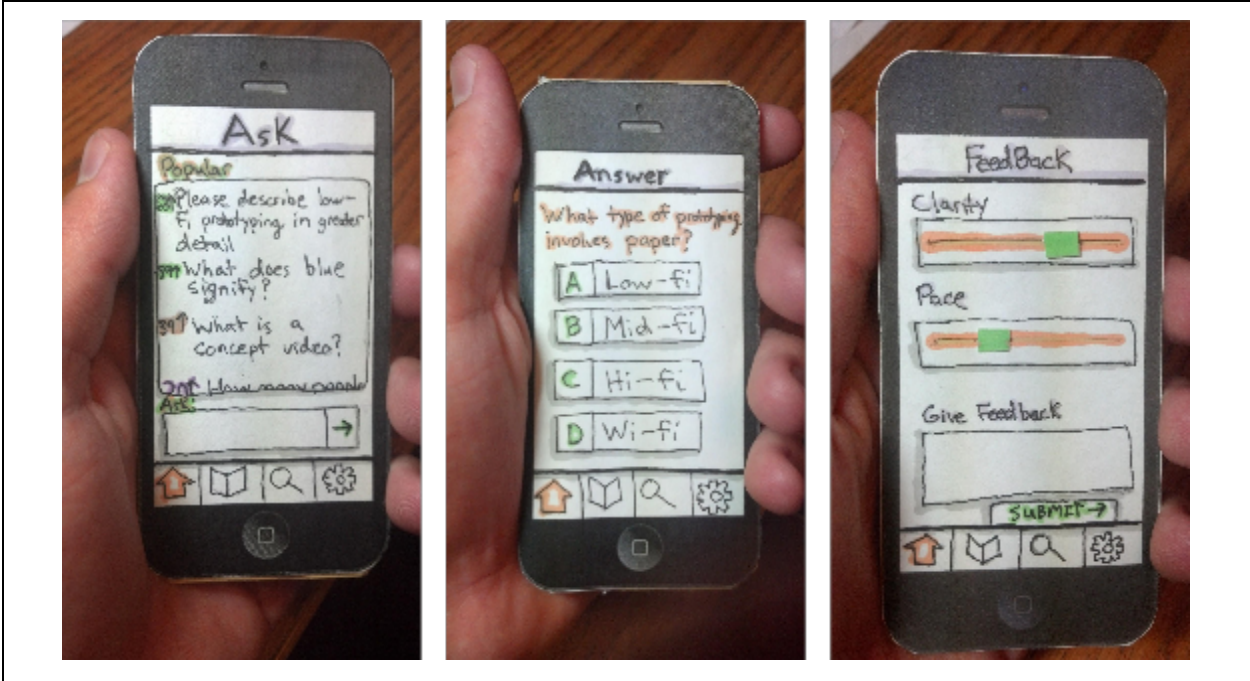 Ask
Popular
Please describe low-
fi prototyping in greater
detail
What does blue
signify?
39↑ What is a
concept video?
How many people
Ask:
→
Answer
What type of prototyping
involves paper?
A Low-fi
B Mid-fi
C Hi-fi
D Wi-fi
FeedBack
Clarity
Pace
Give Feedback
SUBMIT→